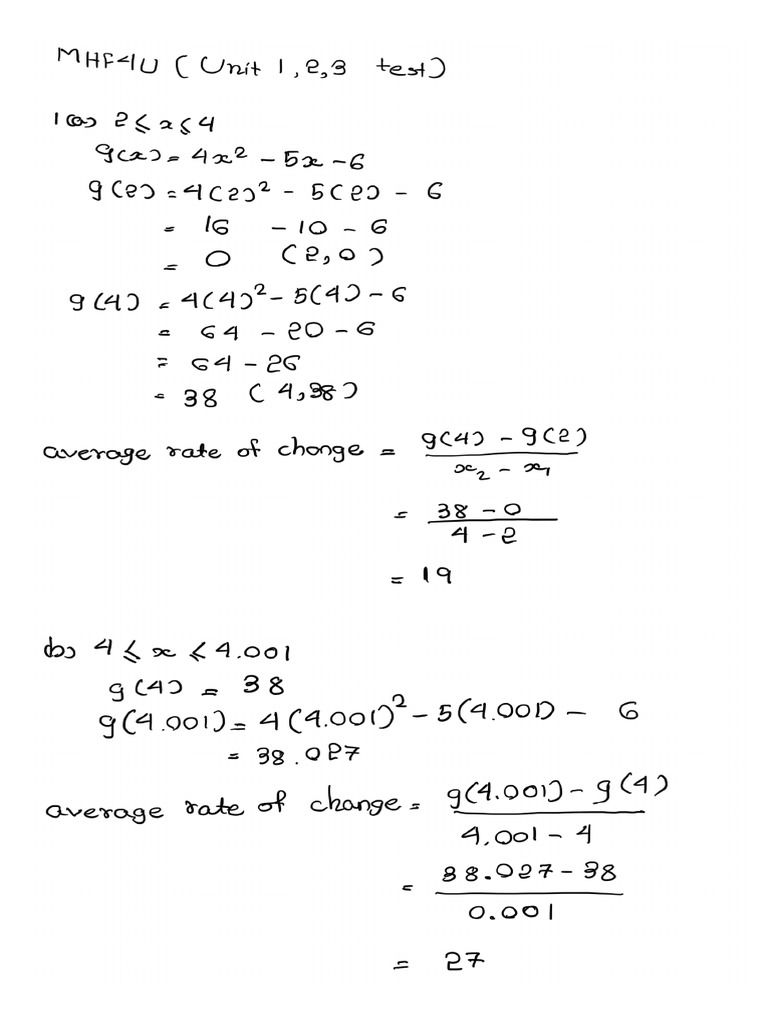 MHF4U (Unit 1,2,3 test)
1(a) 2 ≤ x ≤ 4
g(x) = 4x² - 5x - 6
g(2) = 4(2)² - 5(2) - 6
= 16 - 10 - 6
= 0 (2,0)
g(4) = 4(4)² - 5(4) - 6
= 64 - 20 - 6
= 64 - 26
= 38 (4,38)
average rate of change = g(4) - g(2)
x₂ - x₁
= 38 - 0
4 - 2
= 19
(b) 4 ≤ x ≤ 4.001
g(4) = 38
g(4.001) = 4(4.001)² - 5(4.001) - 6
= 38.027
average rate of change = g(4.001) - g(4)
4.001 - 4
= 38.027 - 38
0.001
= 27